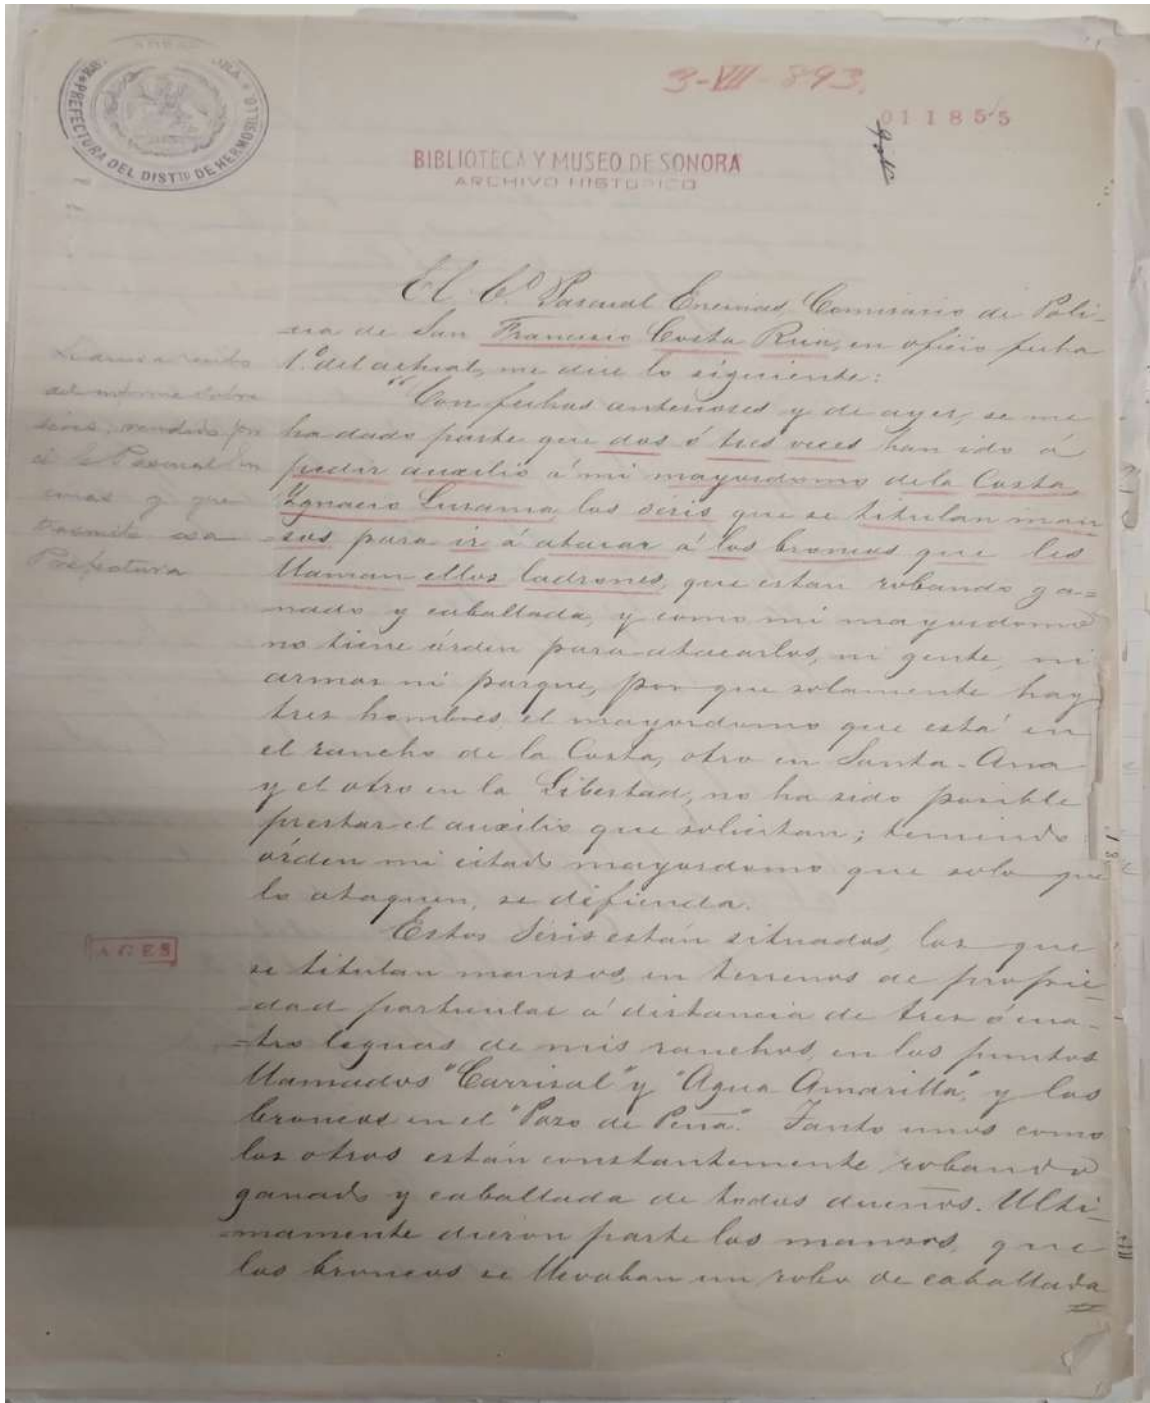 PREFECTURA DEL DISTO DE HERMOSILLO
3-VII-893.
011855
BIBLIOTECA Y MUSEO DE SONORA
ARCHIVO HISTORICO
El C. Pascual Encinas, Comisario de Poli-
-cia de San Francisco Costa Rica, en oficio fecha
1º del actual, me dice lo siguiente:
"Con fechas anteriores y de ayer, se me
ha dado parte que dos ó tres veces han ido á
pedir auxilio á mi mayordomo de la Costa,
Ygnacio Lusania los séris que se titulan man
-sos para ir á atacar á los broncos que les
llaman ellos ladrones, que estan robando ga=
nado y caballada, y como mi mayordomo
no tiene órden para atacarlos, ni gente, ni
armas ni parque, por que solamente hay
tres hombres, el mayordomo que está en
el rancho de la Costa, otro en Santa-Ana
y el otro en la Libertad, no ha sido posible
prestar el auxilio que solicitan; teniendo
órden mi citado mayordomo que solo que
lo ataquen, se difienda.
Estos Séris están situados, los que
se titulan mansos, en terrenos de propie-
-dad particular á distancia de tres ó cua-
-tro leguas de mis ranchos, en los puntos
llamados "Carrisal" y "Agua Amarilla", y los
broncos en el "Pozo de Peña". Tanto unos como
los otros están constantemente robando
ganado y caballada de todos dueños. Ulti-
-mamente dieron parte los mansos, que
los broncos se llevaban un robo de caballada
del informe sobre
séris, rendido por
el C. Pascual En
cinas y que
trasmite esa
Prefectura
AGES